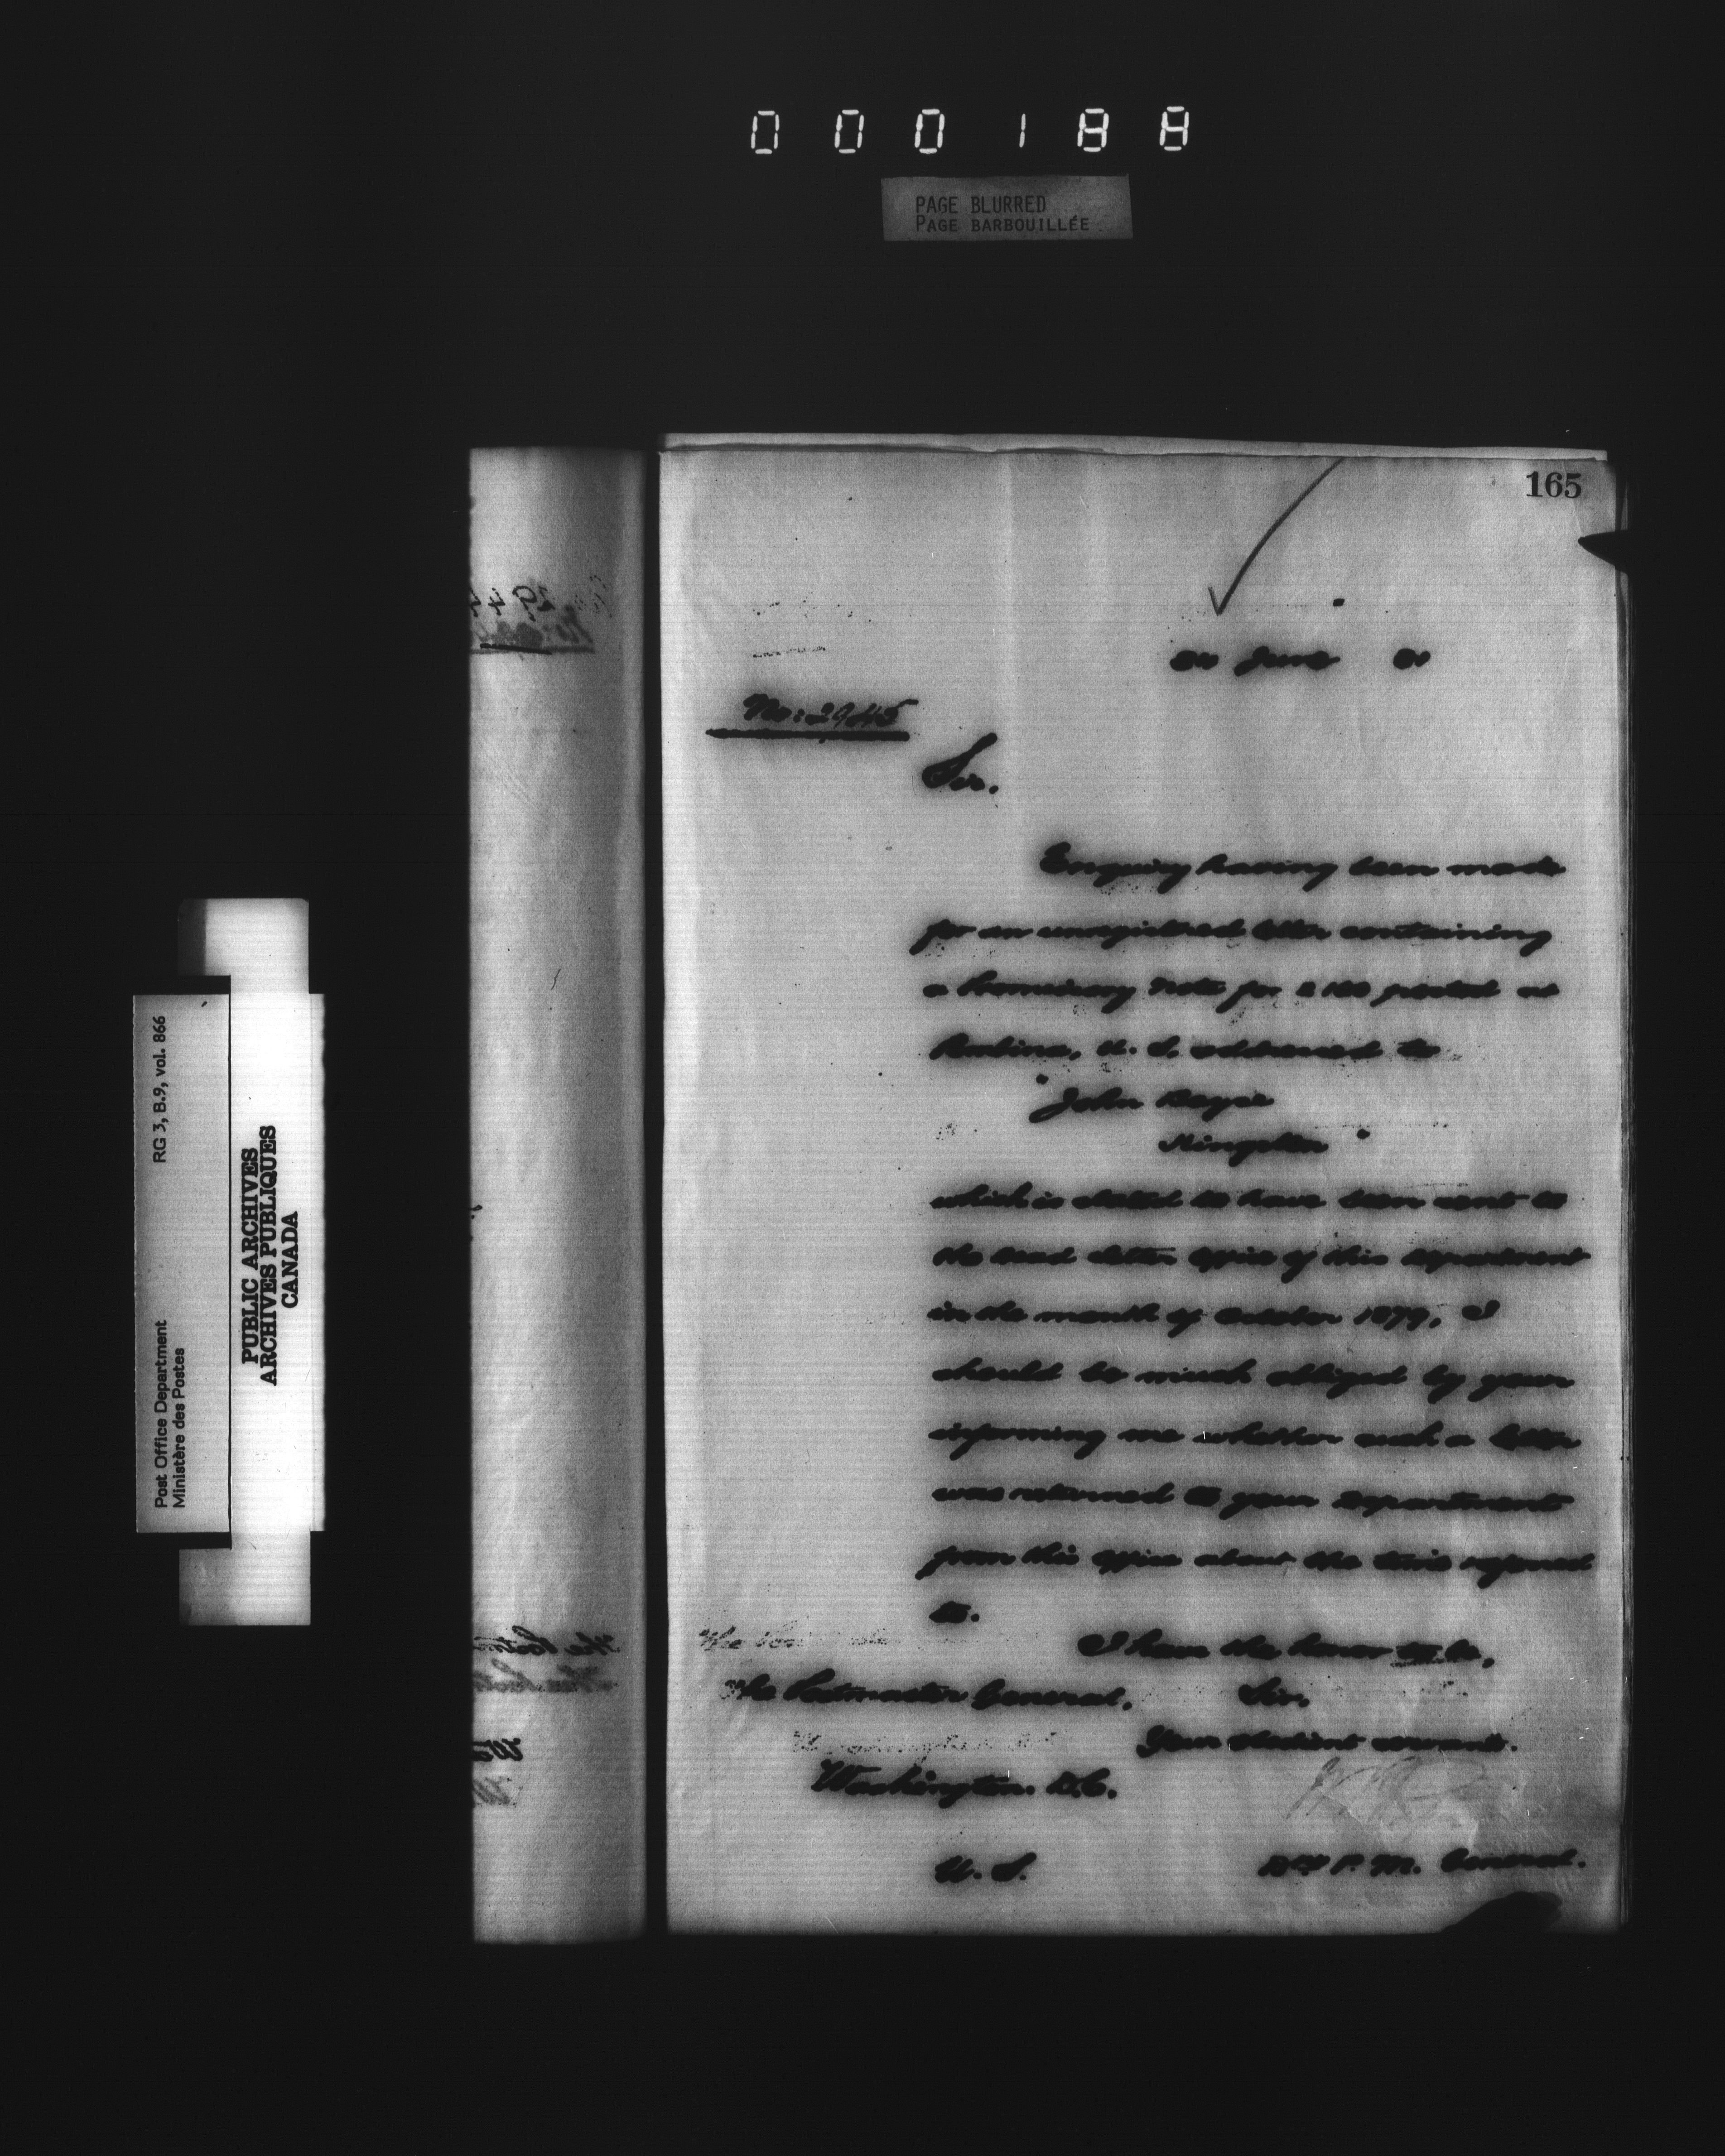 000188
PAGE BLURRED
PAGE BARBOUILLÉE
165
June
No: 2945
Sir.
Enquiry having been made
for an unregistered letter containing
a Promissory Note for $100 posted at
U. S. addressed to
"John
Kingston"
which is stated to have been sent to
the Dead Letter Office of this Department
in the month of October 1879, I
should be much obliged by your
informing me whether such a letter
was returned to your Department
from this Office about the time referred
to.
I have the honor to be,
Sir,
Your obedient servant.
The Postmaster General,
Washington. D.C.
U. S.
Dy P. M. General.
RG 3, B.9, vol. 866
Post Office Department
Ministère des Postes
PUBLIC ARCHIVES
ARCHIVES PUBLIQUES
CANADA